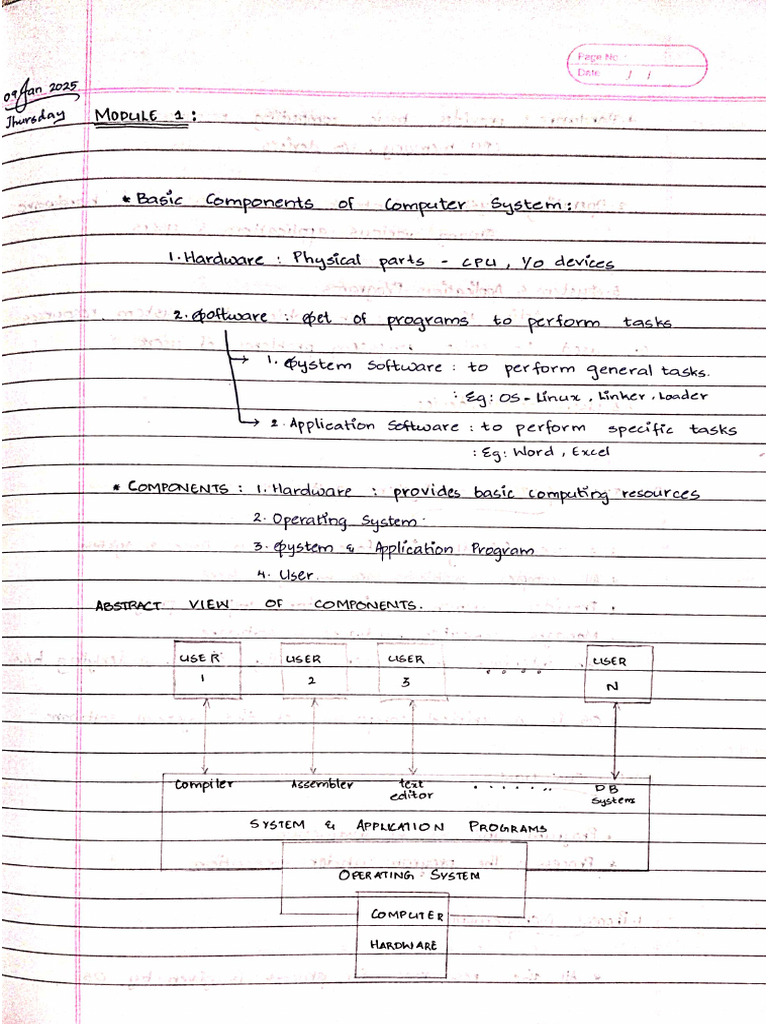 Page No
Date / /
09 Jan 2025
Thursday
MODULE 1 :
* Basic Components of Computer System :
1. Hardware : Physical parts - CPU, I/O devices
2. Software : Set of programs to perform tasks
1. System Software : to perform general tasks.
: Eg: OS - Linux, Linker, Loader
2. Application Software : to perform specific tasks
: Eg: Word, Excel
* COMPONENTS : 1. Hardware : provides basic computing resources
2. Operating System
3. System & Application Program
4. User
ABSTRACT VIEW OF COMPONENTS.
USER USER USER USER
1 2 3 . . . . N
Compiler Assembler text editor . . . . . . . DB Systems
SYSTEM & APPLICATION PROGRAMS
OPERATING SYSTEM
COMPUTER
HARDWARE